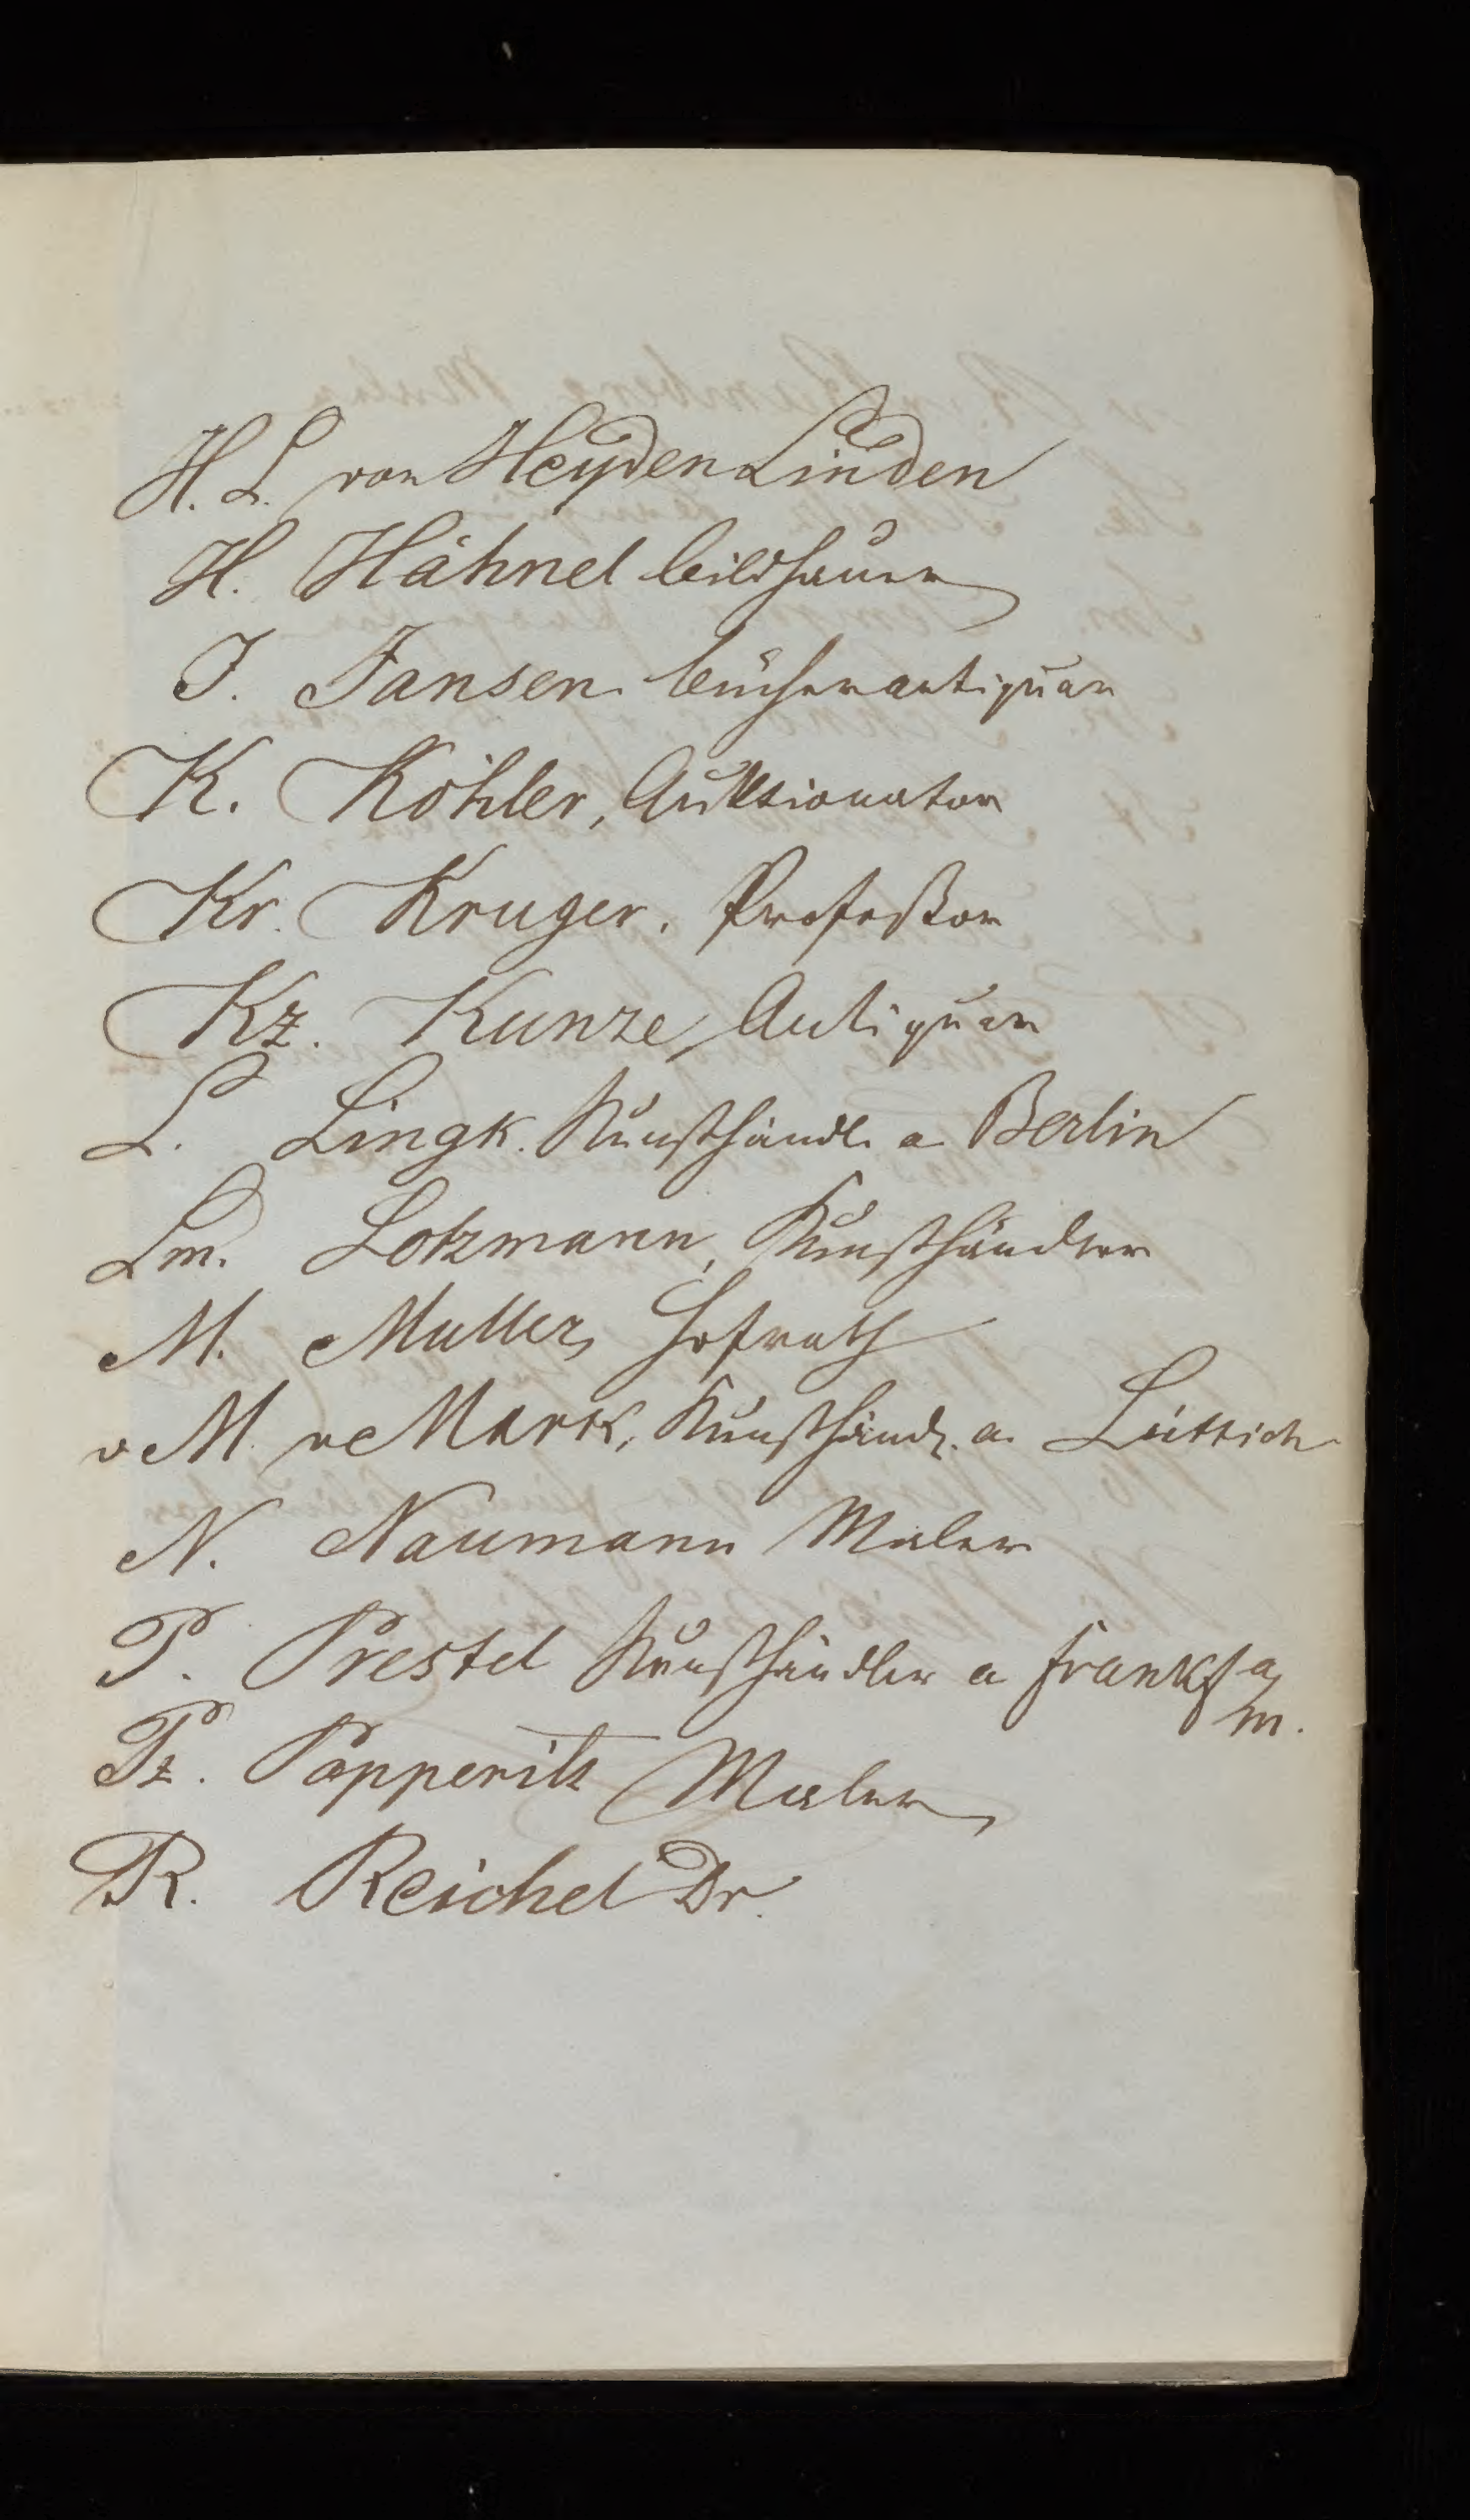 H. L. von Heyden Linden
H. Hähnel bildhauer
J. Jansen bücherantiquar
K. Köhler, Auktionator
Kr. Kruger. Profeßor
Kz. Kunze, Antiquar
L. Lingk. Kunsthändl. a Berlin
Lm. Lotzmann, Kunsthändler
M. Muller, Hofrath
v M. v Mark, Kunsthändl. a. Lüttich
N. Naumann Maler
P. Prestel Kunsthändler a Frankf a
m.
Pz. Papperitz Maler
R. Reichel Dr.